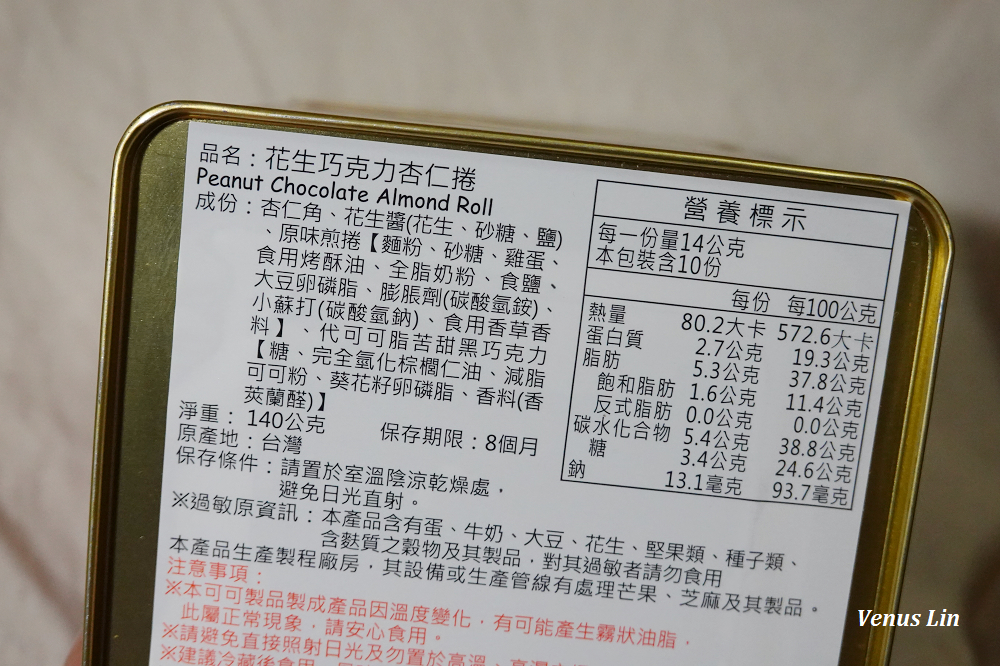 品名：花生巧克力杏仁捲
Peanut Chocolate Almond Roll
成份：杏仁角、花生醬(花生、砂糖、鹽)
、原味煎捲【麵粉、砂糖、雞蛋、
食用烤酥油、全脂奶粉、食鹽、
大豆卵磷脂、膨脹劑(碳酸氫銨)、
小蘇打(碳酸氫鈉)、食用香草香
料】、代可可脂苦甜黑巧克力
【糖、完全氫化棕櫚仁油、減脂
可可粉、葵花籽卵磷脂、香料(香
莢蘭醛)】
淨重：140公克 保存期限：8個月
原產地：台灣
保存條件：請置於室溫陰涼乾燥處，
避免日光直射。
※過敏原資訊：本產品含有蛋、牛奶、大豆、花生、堅果類、種子類、
含麩質之穀物及其製品，對其過敏者請勿食用
本產品生產製程廠房，其設備或生產管線有處理芒果、芝麻及其製品。
注意事項：
※本可可製品製成產品因溫度變化，有可能產生霧狀油脂，
此屬正常現象，請安心食用。
※請避免直接照射日光及勿置於高溫、高濕
※建議冷藏後食用
營養標示
每一份量14公克
本包裝含10份
每份 每100公克
熱量 80.2大卡 572.6大卡
蛋白質 2.7公克 19.3公克
脂肪 5.3公克 37.8公克
飽和脂肪 1.6公克 11.4公克
反式脂肪 0.0公克 0.0公克
碳水化合物 5.4公克 38.8公克
糖 3.4公克 24.6公克
鈉 13.1毫克 93.7毫克
Venus Lin